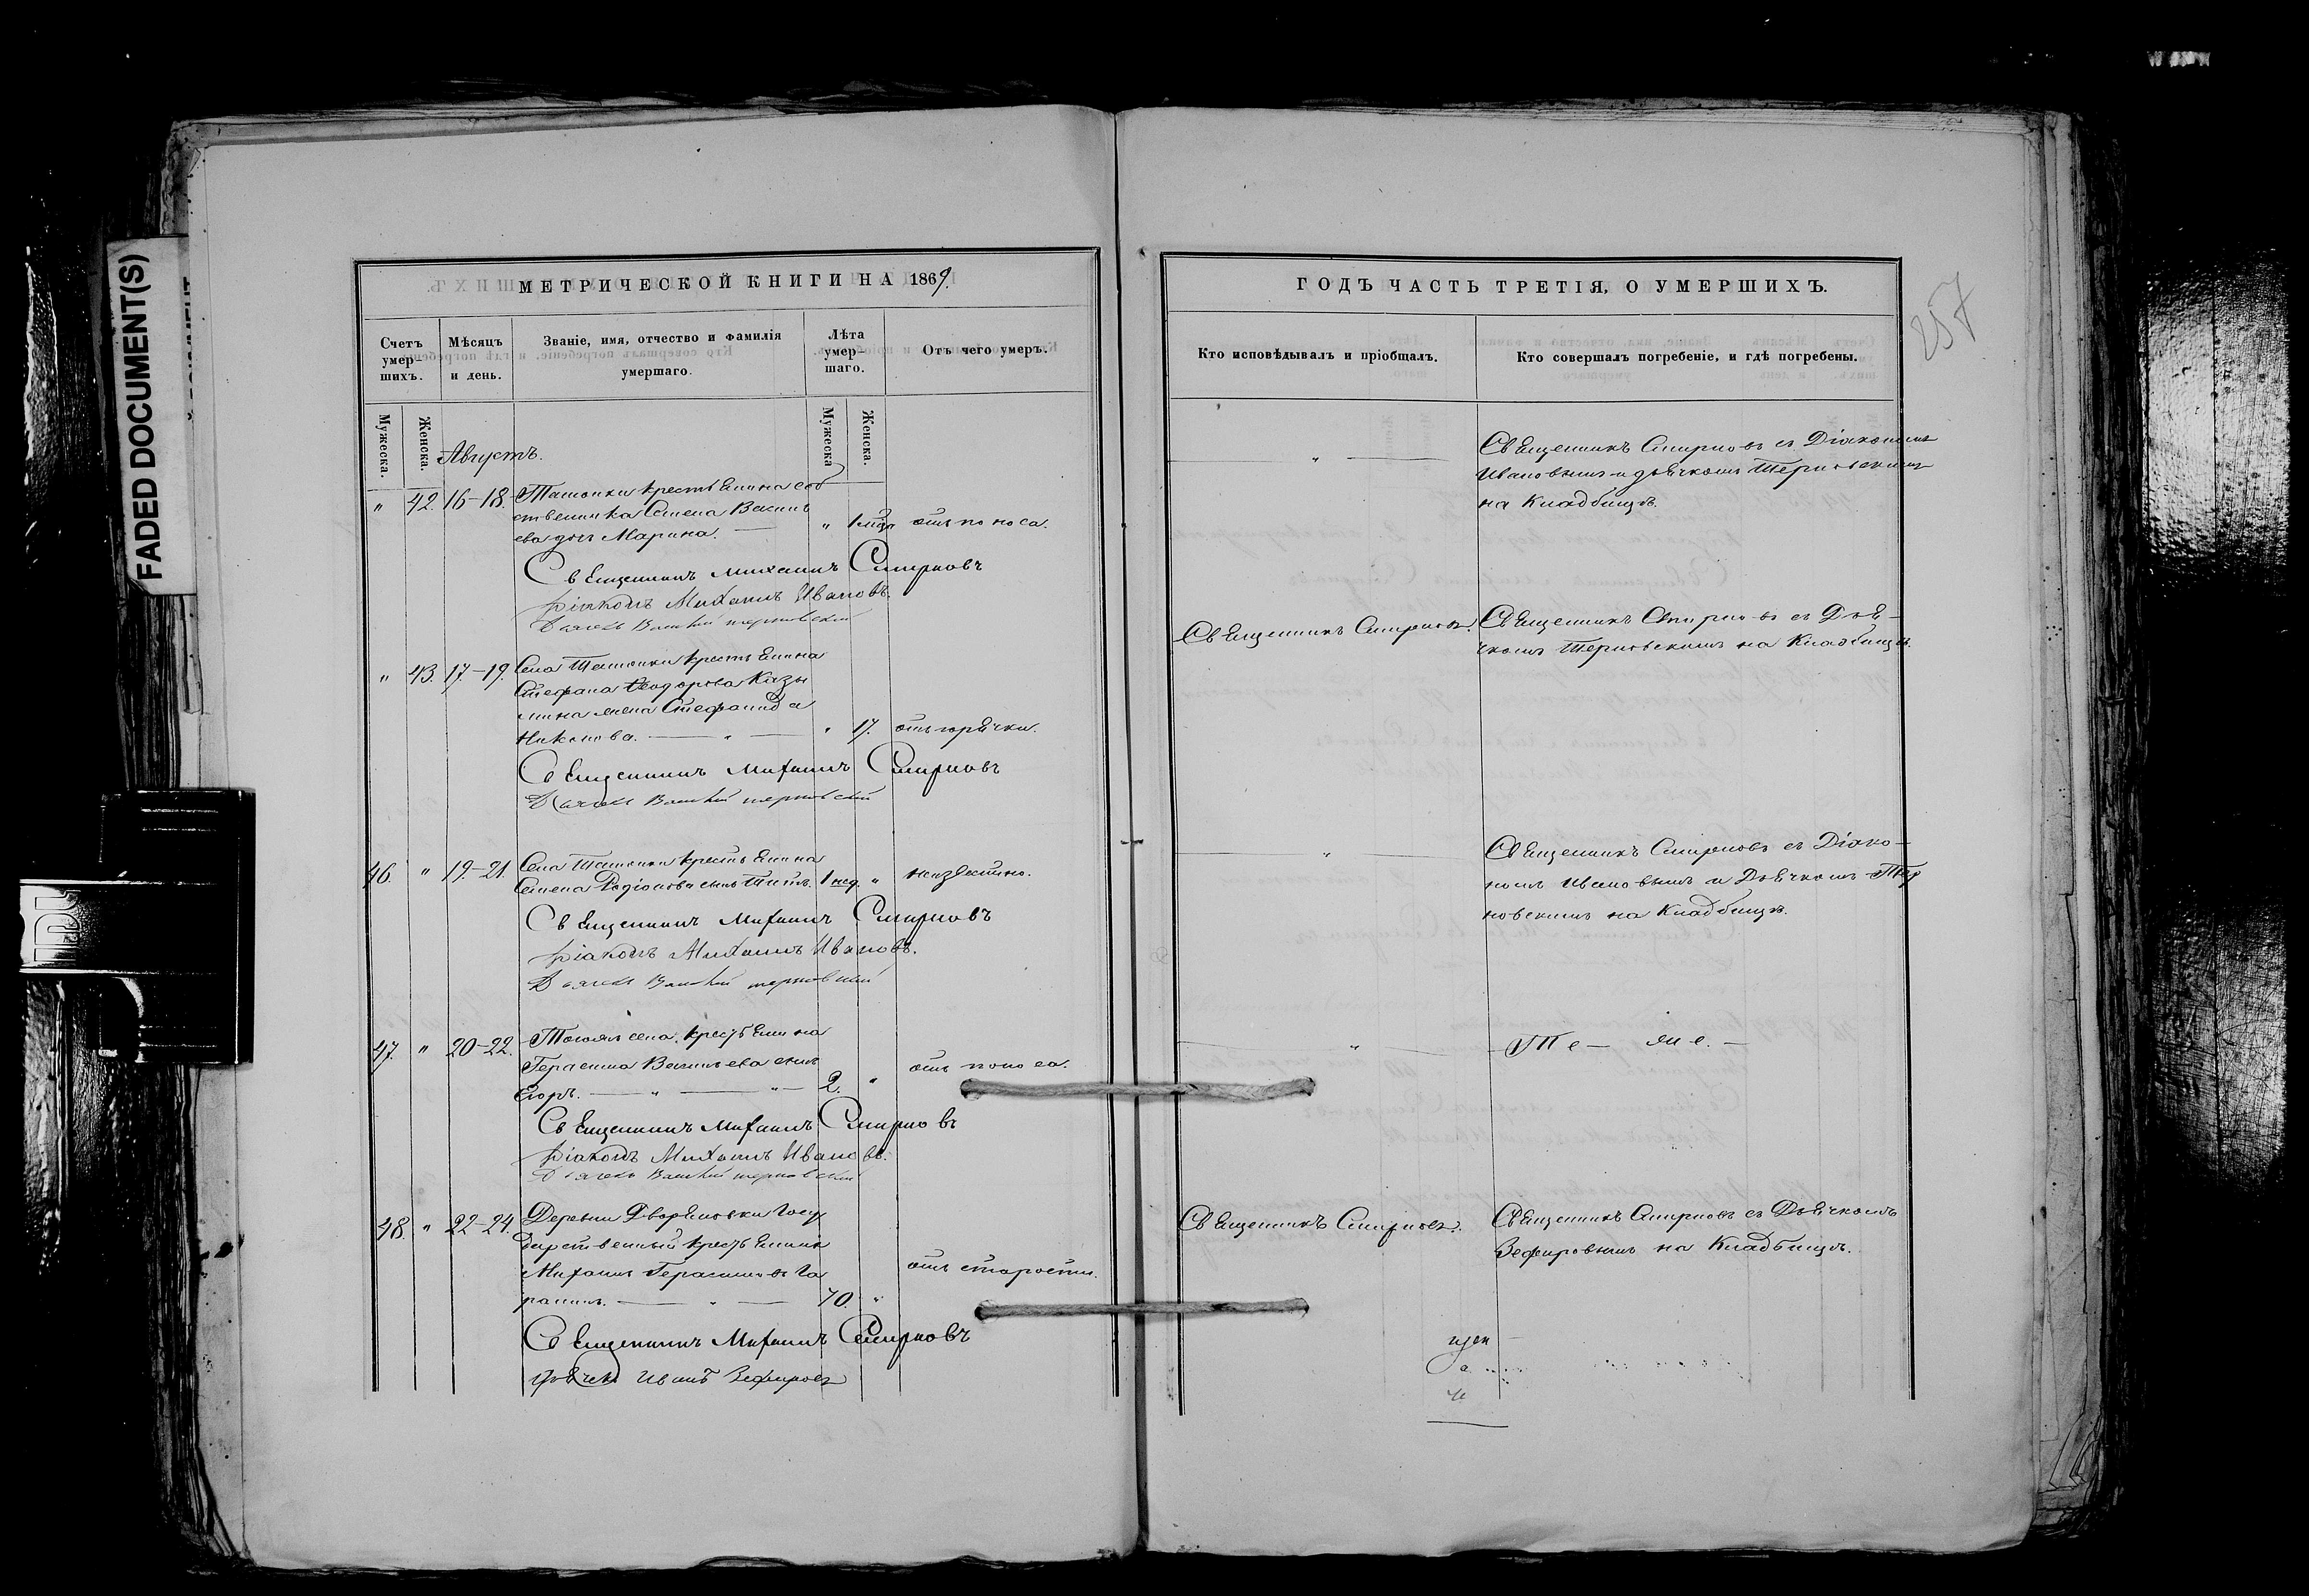 FADED DOCUMENT(S)
МЕТРИЧЕСКОЙ КНИГИ НА 1869.
Счетъ умер-шихъ.
Мѣсяцъ и день.
Званіе, имя, отчество и фамилія умершаго.
Лѣта умер-шаго.
Отъ чего умеръ.
Мужеска.
Женска.
Мужеска
Женска.
Августъ.
" 42. 16-18. крестьянина соб
ственника Семена Василь
ева дочь Марина. — " отъ поноса.
Священникъ Михаилъ Смирновъ
Діаконъ Михаилъ Ивановъ.
Дьячекъ Василій Терновскій
" 43. 17-19. Села крестьянина
Стефана Ѳеодорова
жена Стефанида
Никонова. — " — " 17. отъ горячки.
Священникъ Михаилъ Смирновъ
Дьячекъ Василій Терновскій
46. " 19-21. Села крестьянина
Семена Родіонова сынъ Титъ. 1 нед. " неизвестно.
Священникъ Михаилъ Смирновъ
Діаконъ Михаилъ Ивановъ.
Дьячекъ Василій Терновскій
47. " 20-22. Тогожъ села крестьянина
Герасима Васильева сынъ
Егоръ. — " — " — 2. " отъ поноса.
Священникъ Михаилъ Смирновъ
Діаконъ Михаилъ Ивановъ.
Дьячекъ Василій Терновскій
48. " 22-24. Деревни Госу
дарственный крестьянинъ
Михаилъ Герасимовъ Га
ранинъ. — " — 70. " отъ старости.
Священникъ Михаилъ Смирновъ
Дьячекъ Иванъ Зефировъ
ГОДЪ ЧАСТЬ ТРЕТІЯ, О УМЕРШИХЪ.
257
Кто исповѣдывалъ и пріобщалъ.
Кто совершалъ погребеніе, и гдѣ погребены.
— " —
Священникъ Смирновъ съ Діакономъ
Ивановымъ и дьячкомъ Терновскимъ
на Кладбищѣ.
Священникъ Смирновъ.
Священникъ Смирновъ съ Дья-
чкомъ Терновскимъ на Кладбищѣ.
— " —
Священникъ Смирновъ съ Діако-
номъ Ивановымъ и Дьячкомъ Тер
новскимъ на Кладбищѣ.
— " —
— Тѣ — же. —
Священникъ Смирновъ.
Священникъ Смирновъ съ Дьячкомъ
Зефировымъ на Кладбищѣ.